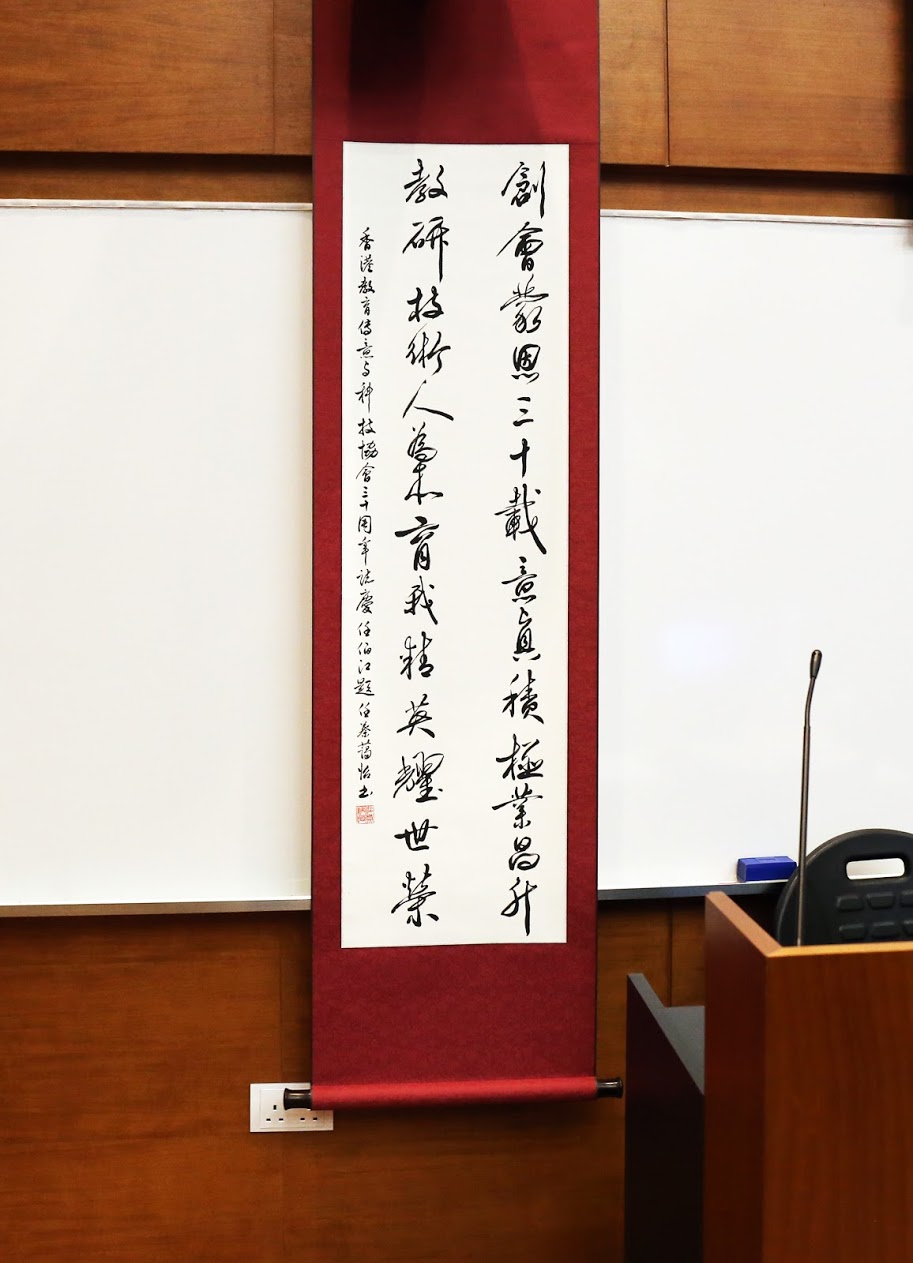 創會蒙恩三十載意真積極業昌升
教研技術人為本育我精英耀世榮
香港教育傳意与科技協會三十周年誌慶任伯江題任蔡怡书